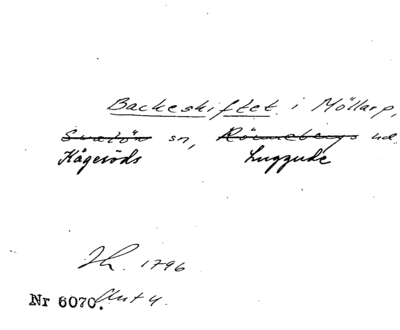 Backeskiftet i Möllarp,
Svalöv sn, Rönnebergs hd,
Kågeröds Luggude
Th. 1796
Nr 6070.